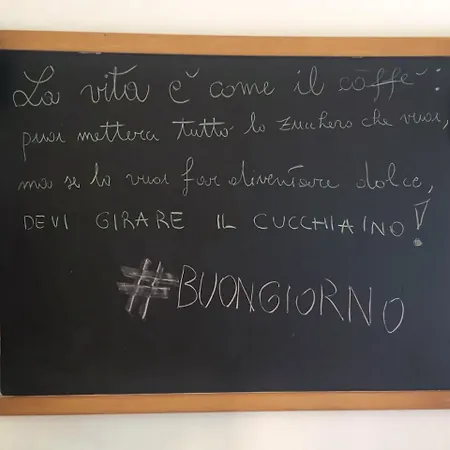 La vita è come il caffè:
puoi metterci tutto lo zucchero che vuoi,
ma se lo vuoi far diventare dolce,
DEVI GIRARE IL CUCCHIAINO!
#BUONGIORNO